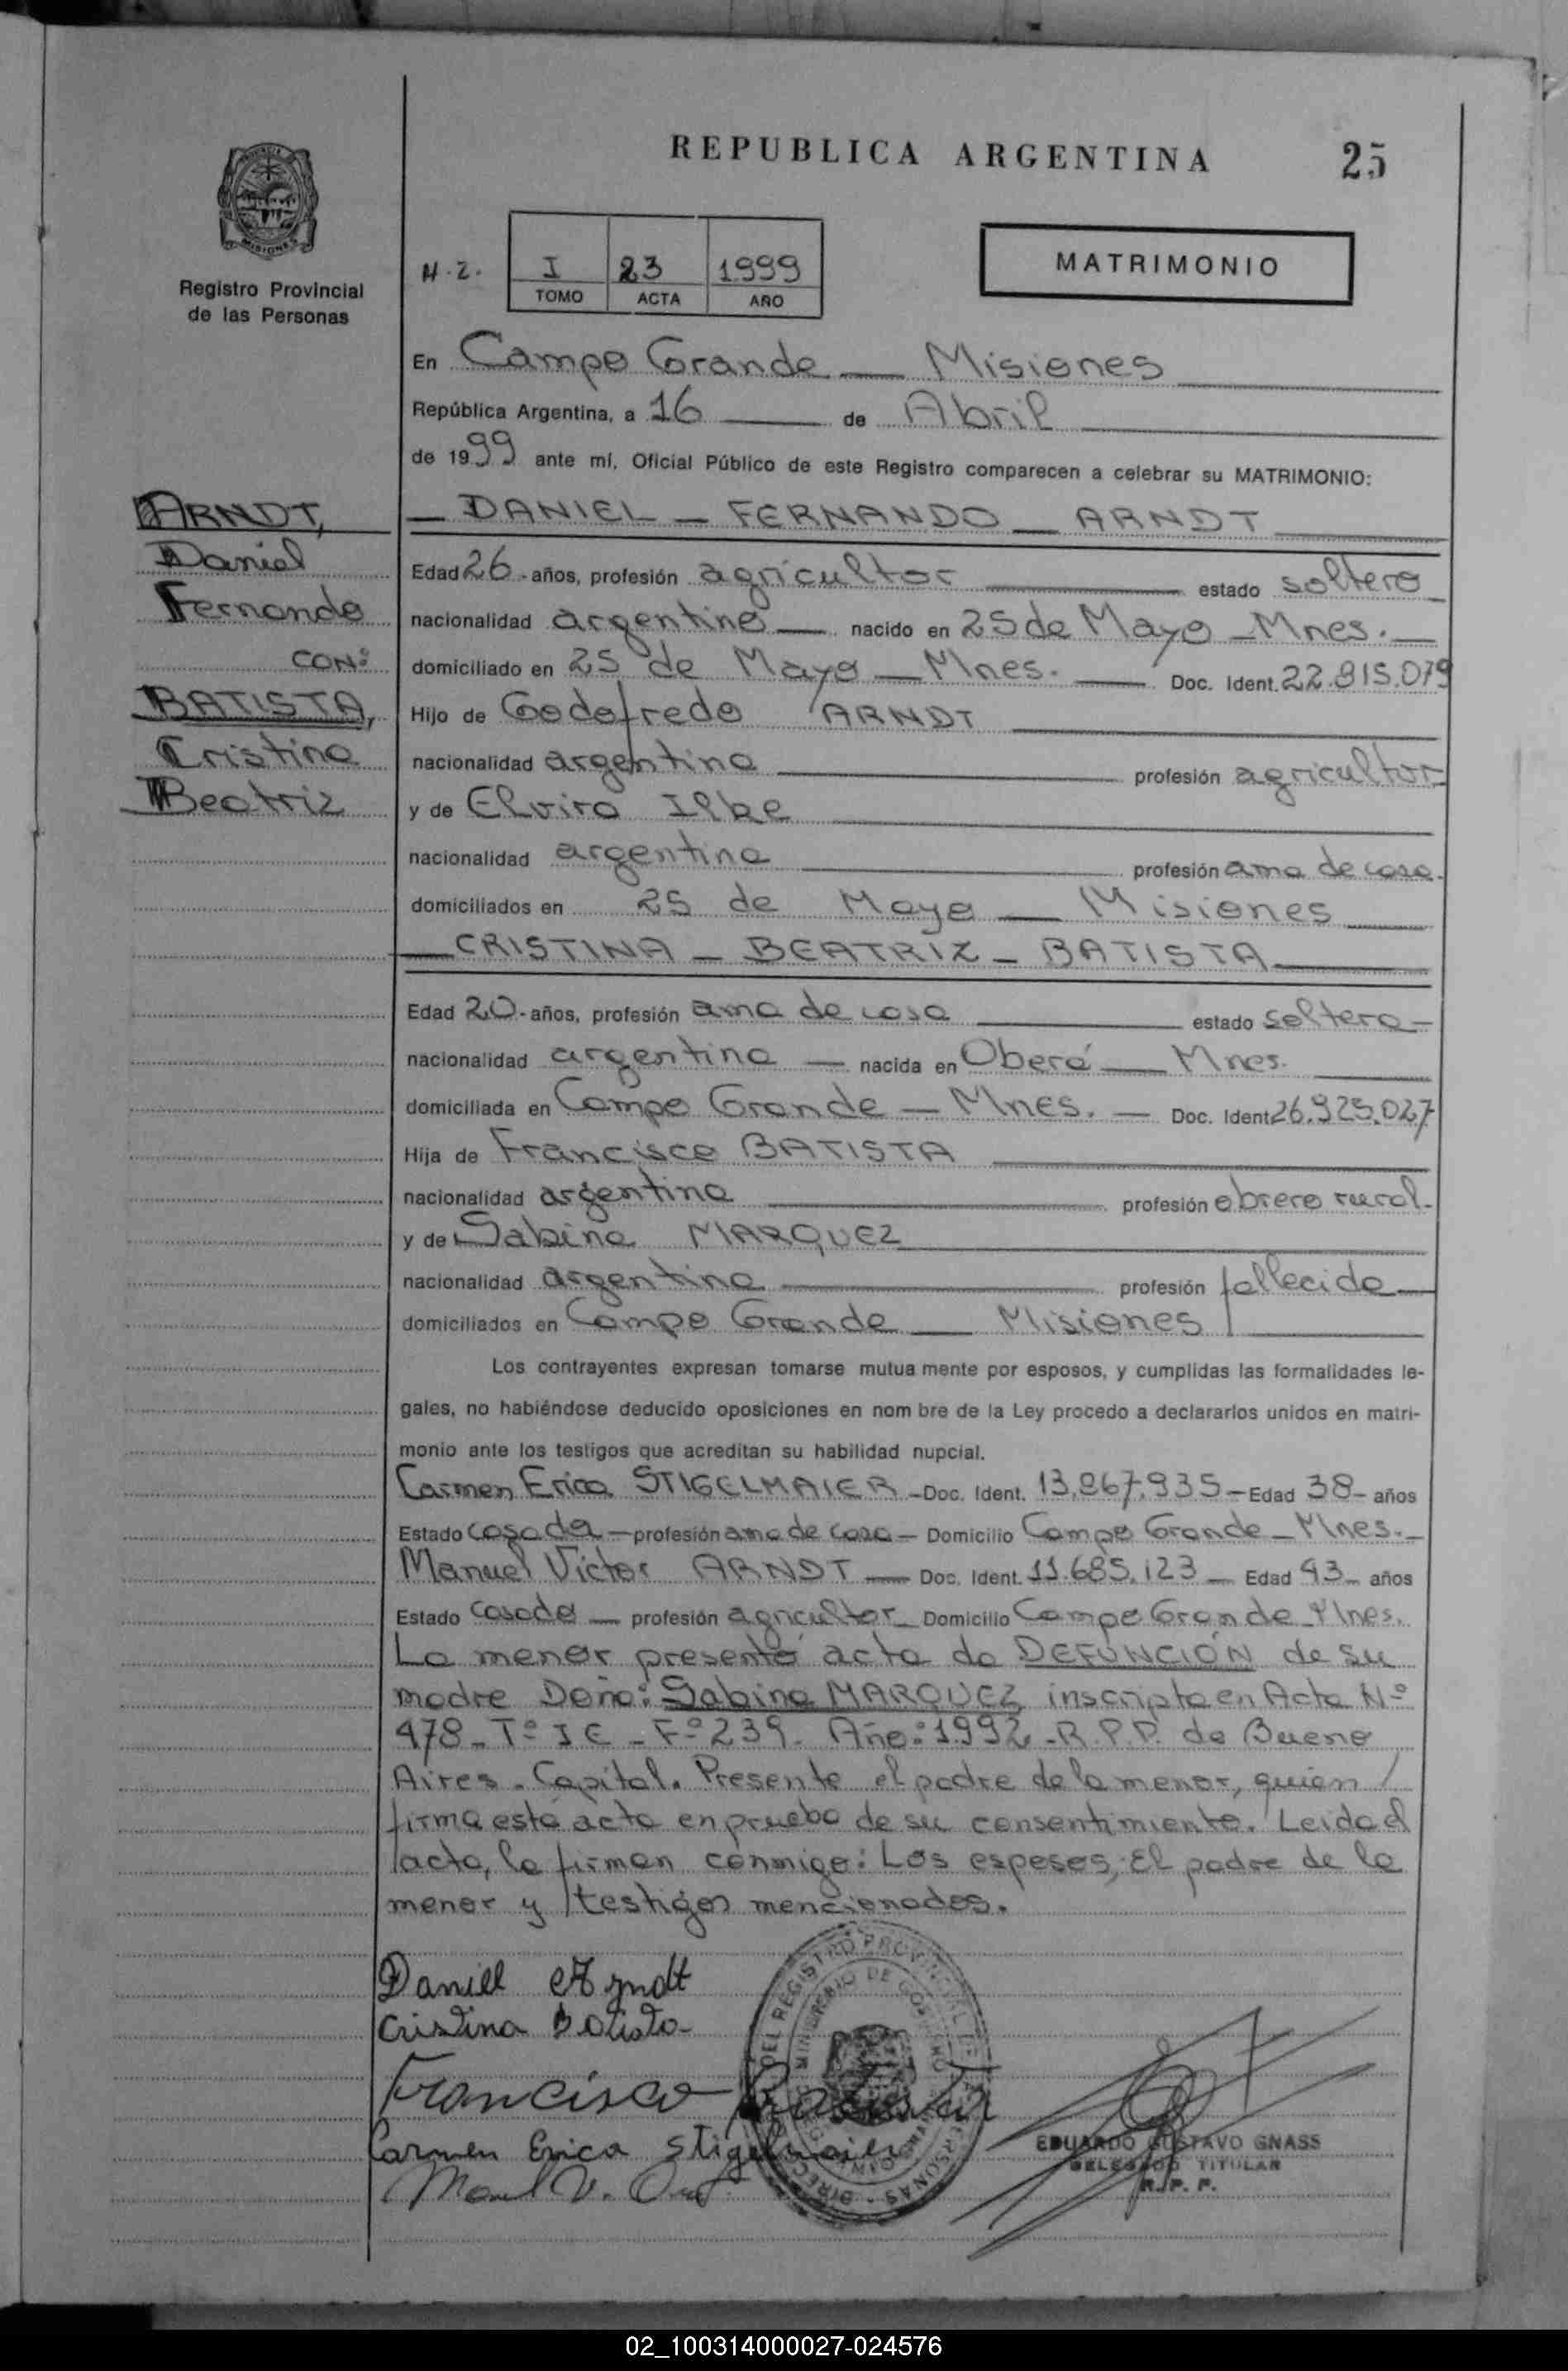 REPUBLICA ARGENTINA
25
PROVINCIA DE MISIONES
Registro Provincial
de las Personas
H.2.
I 23 1999
TOMO ACTA AÑO
MATRIMONIO
En Campo Grande — Misiones
República Argentina, a 16 — de Abril
de 1999 ante mí, Oficial Público de este Registro comparecen a celebrar su MATRIMONIO:
ARNDT,
Daniel
Fernando
CON:
BATISTA,
Cristina
Beatriz
— DANIEL — FERNANDO — ARNDT
Edad 26 - años, profesión agricultor — estado soltero
nacionalidad argentino — nacido en 25 de Mayo - Mnes. —
domiciliado en 25 de Mayo — Mnes. — Doc. Ident. 22.815.079
Hijo de Godofredo ARNDT
nacionalidad argentina — profesión agricultor
y de Elvira Ilke
nacionalidad argentina — profesión ama de casa.
domiciliados en 25 de Mayo — Misiones
— CRISTINA — BEATRIZ — BATISTA —
Edad 20 - años, profesión ama de casa — estado soltera —
nacionalidad argentina — nacida en Oberá — Mnes.
domiciliada en Campo Grande — Mnes. — Doc. Ident 26.925.027
Hija de Francisco BATISTA
nacionalidad argentina — profesión obrero rural.
y de Sabina MARQUEZ
nacionalidad argentina — profesión fallecida —
domiciliados en Campo Grande — Misiones
Los contrayentes expresan tomarse mutua mente por esposos, y cumplidas las formalidades le-
gales, no habiéndose deducido oposiciones en nom bre de la Ley procedo a declararlos unidos en matri-
monio ante los testigos que acreditan su habilidad nupcial.
Carmen Erica STIGELMAIER - Doc. Ident. 13.867.935 — Edad 38 - años
Estado casada — profesión ama de casa — Domicilio Campo Grande — Mnes. —
Manuel Victor ARNDT — Doc. Ident. 11.685.123 — Edad 43 - años
Estado casado — profesión agricultor — Domicilio Campo Grande - Mnes.
La menor presentó acta de DEFUNCIÓN de su
madre Doña: Sabina MARQUEZ inscripta en Acta Nº
478 - Tº I E - Fº 239. Año: 1992 - R.P.P. de Bueno
Aires. Capital. Presente el padre de la menor, quien /
firma está acta en prueba de su consentimiento. Leida el
acta, la firman conmigo: Los esposos, El padre de la
menor y testigos mencionados.
Daniel Arndt
Cristina Batista
Francisco Batista
Carmen Erica Stigelmaier
EDUARDO GUSTAVO GNASS
DELEGADO TITULAR
R. P. P.
02_100314000027-024576